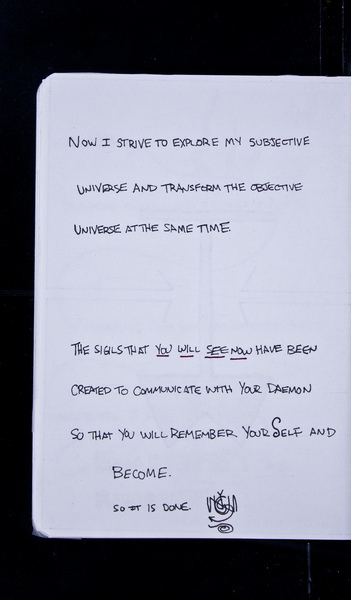 NOW I STRIVE TO EXPLORE MY SUBJECTIVE
UNIVERSE AND TRANSFORM THE OBJECTIVE
UNIVERSE AT THE SAME TIME.
THE SIGILS THAT YOU WILL SEE NOW HAVE BEEN
CREATED TO COMMUNICATE WITH YOUR DAEMON
SO THAT YOU WILL REMEMBER YOUR SELF AND
BECOME.
SO IT IS DONE.